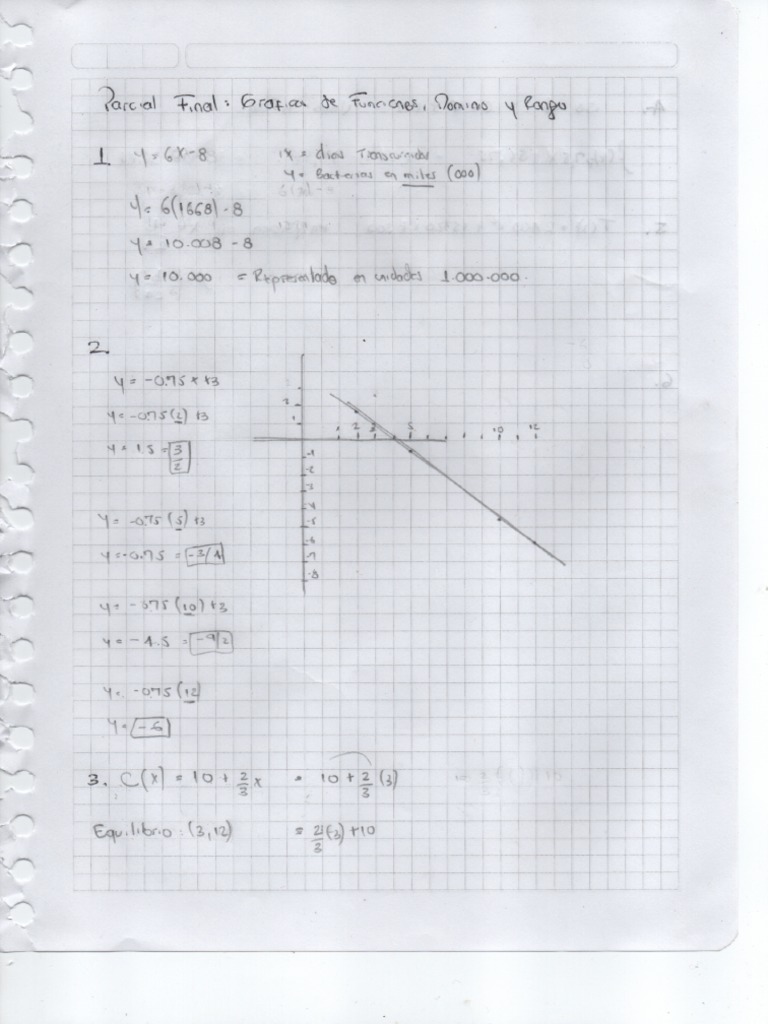 Parcial Final: Graficas de Funciones, Domino y Rango
1. y = 6x - 8 x = dias Transcurridos
y = Bacterias en miles (000)
y = 6(1668) - 8
y = 10.008 - 8
y = 10.000 = Representado en unidades 1.000.000.
2.
y = -0.75 x +3
y = -0.75(2)+3
y = 1.5 = 3/2
y = -0.75 (5)+3
y = -0.75 = -3/4
y = -0.75 (10)+3
y = -4.5 = -9/2
y = -0.75 (12)
y = -6
2 1
1 2 3 5 10 12
-1
-2
-3
-4
-5
-6
-7
-8
3. C(x) = 10 + 2/3 x = 10 + 2/3 (3)
Equilibrio: (3,12) = 2/3(3)+10